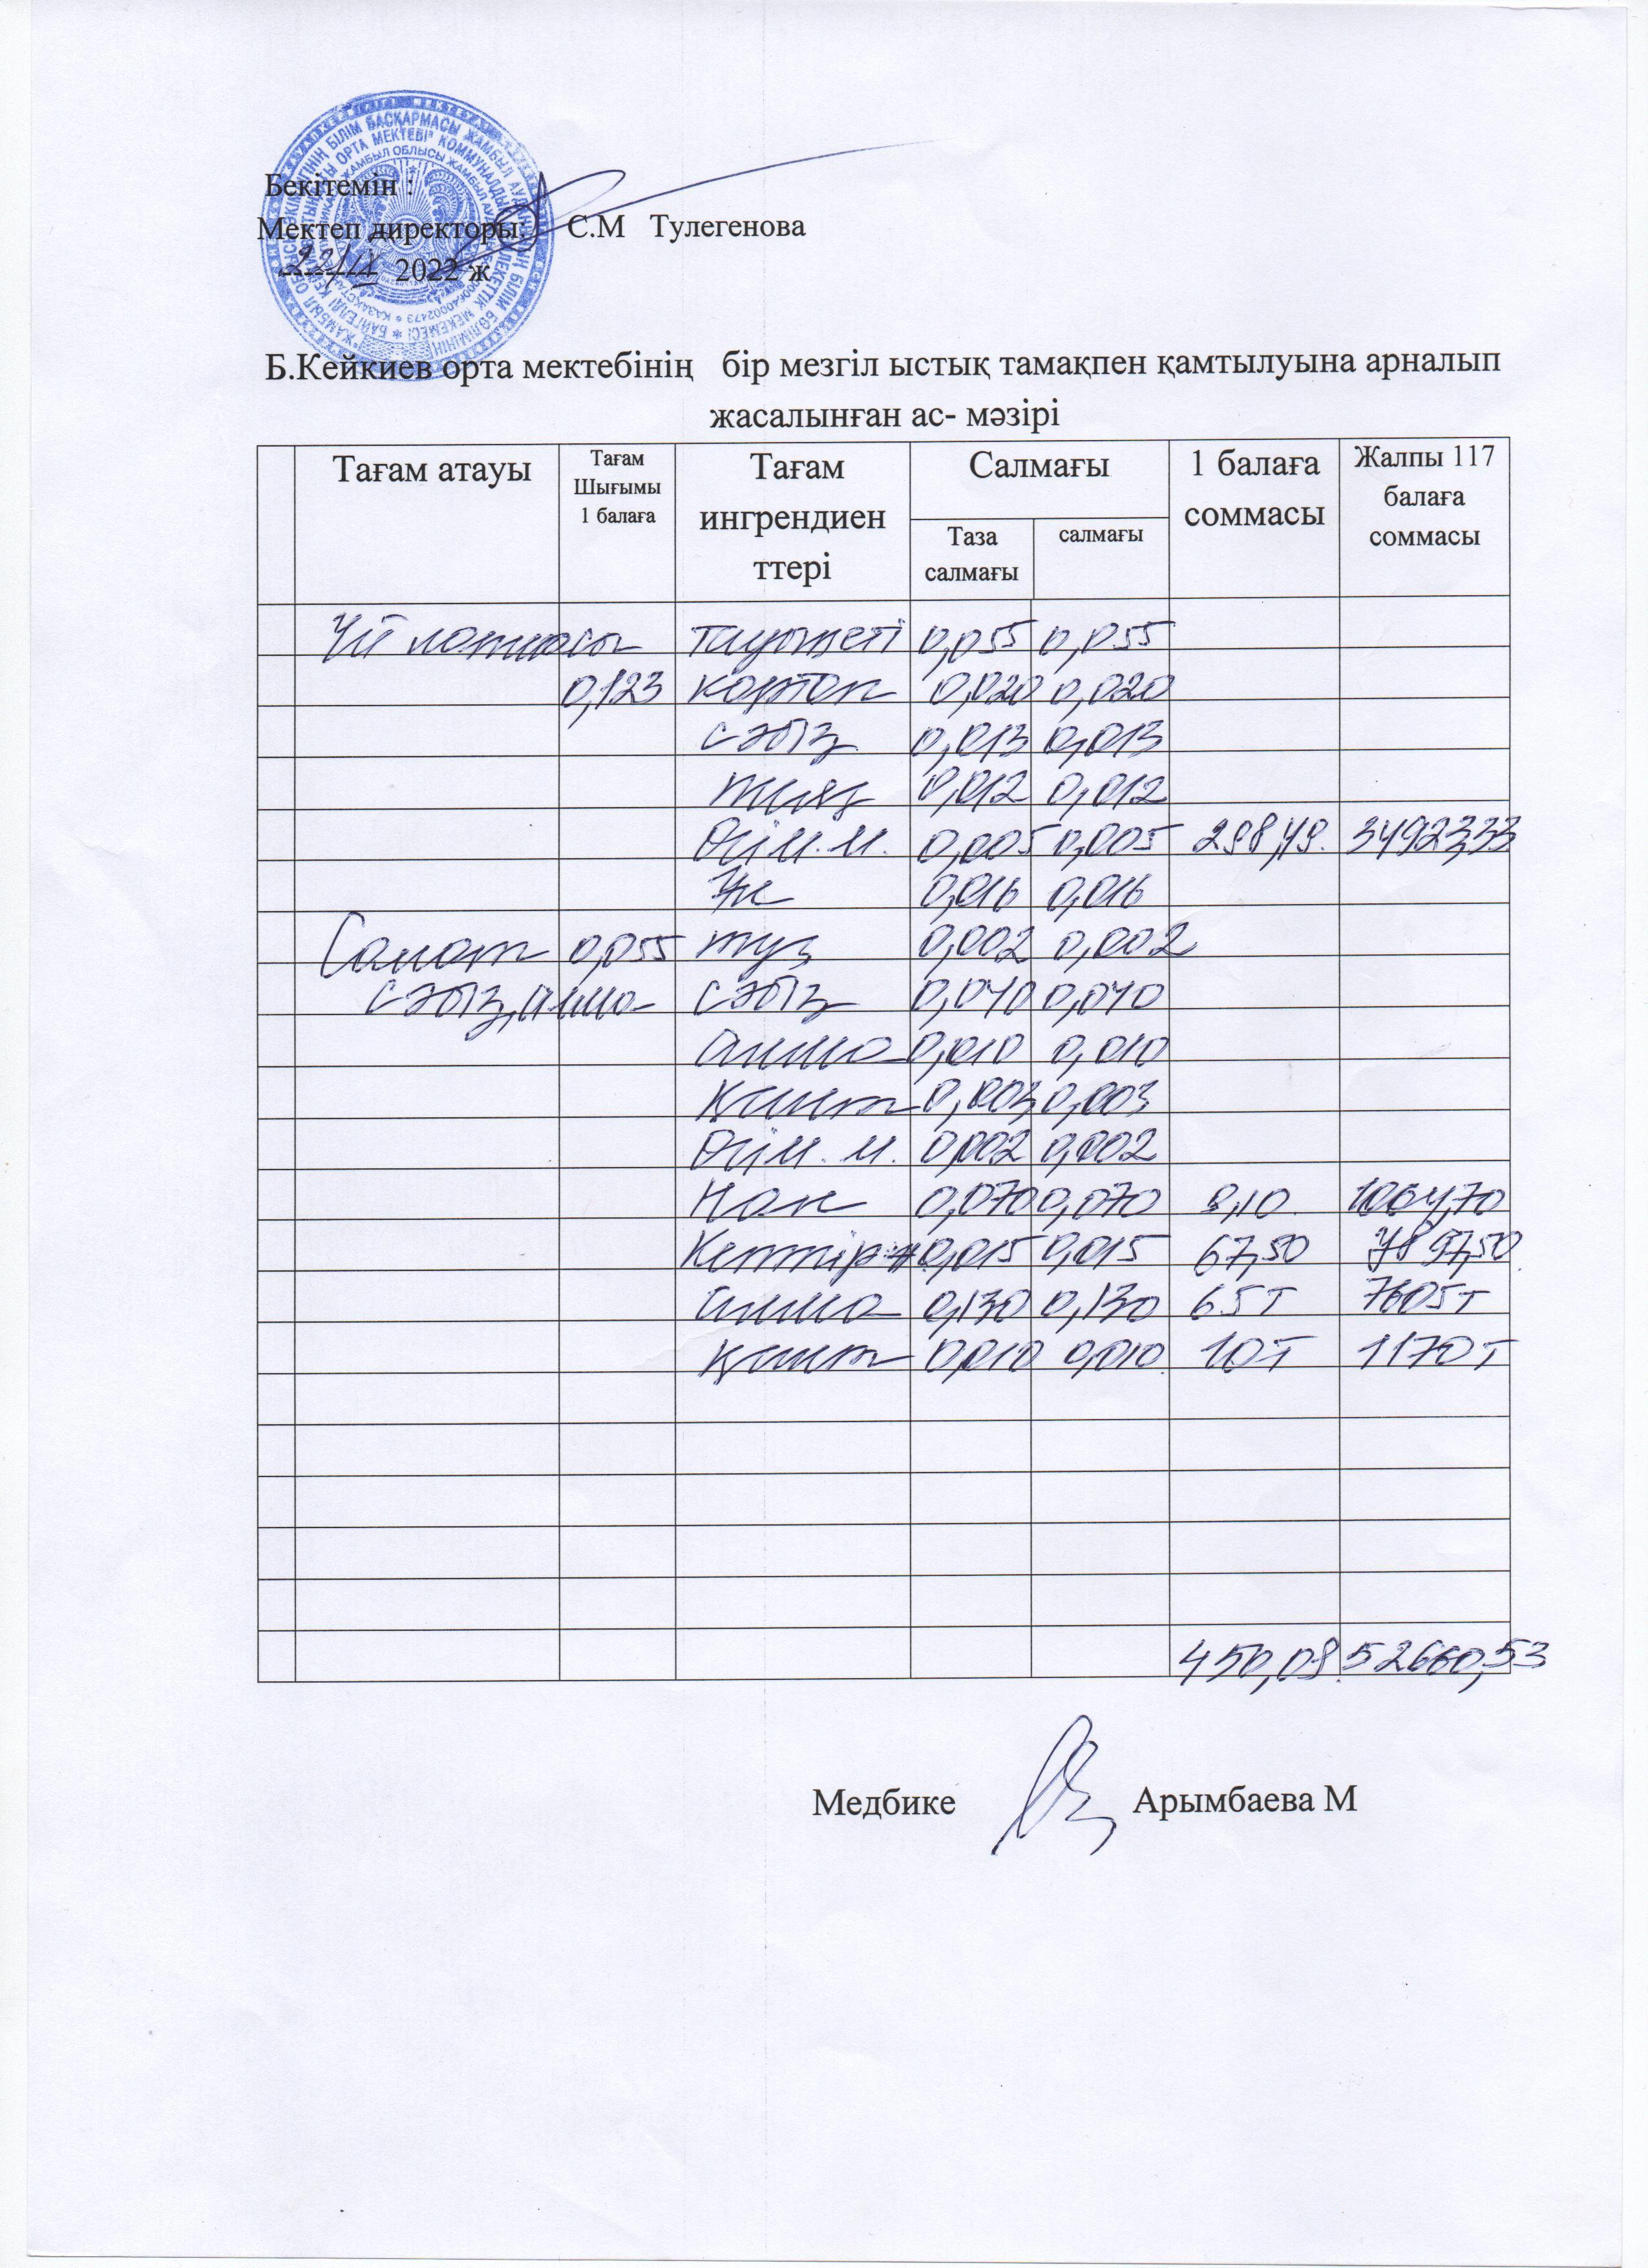 Бекітемін :
Мектеп директоры: С.М Тулегенова
22/IX 2022 ж
Б.Кейкиев орта мектебінің бір мезгіл ыстық тамақпен қамтылуына арналып
жасалынған ас- мәзірі
Тағам атауы
Тағам
Шығымы
1 балаға
Тағам
ингрендиен
ттері
Салмағы
Таза
салмағы
салмағы
1 балаға
соммасы
Жалпы 117
балаға
соммасы
Үй 0,055 0,055
0,123 картоп 0,020 0,020
сәбіз 0,013 0,013
пияз 0,012 0,012
Өсім.м. 0,005 0,005 298,49. 34923,33
Ұн 0,016 0,016
Салат 0,055 тұз 0,002 0,002
сәбіз, алма сәбіз 0,040 0,040
алма 0,010 0,010
Қант 0,003 0,003
Өсім. м. 0,002 0,002
Нан 0,070 0,070 9,10 1064,70
0,015 0,015 67,50 7897,50
алма 0,130 0,130 65т 7605т
қант 0,010 0,010 10т 1170т
450,09. 52660,53
Медбике Арымбаева М